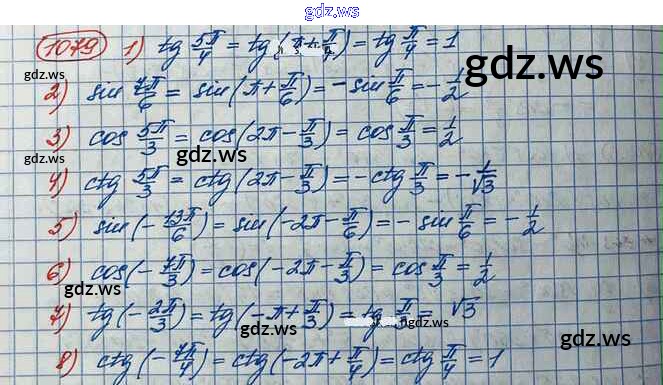 gdz.ws
1079 1) tg 5π/4 = tg(π+π/4) = tg π/4 = 1
gdz.ws
gdz.ws
2) sin 7π/6 = sin(π+π/6) = -sin π/6 = -1/2
3) cos 5π/3 = cos(2π-π/3) = cos π/3 = 1/2
gdz.ws
gdz.ws
4) ctg 5π/3 = ctg(2π-π/3) = -ctg π/3 = -1/√3
gdz.ws
5) sin(-13π/6) = sin(-2π-π/6) = -sin π/6 = -1/2
6) cos(-7π/3) = cos(-2π-π/3) = cos π/3 = 1/2
gdz.ws
7) tg(-2π/3) = tg(-π+π/3) = tg π/3 = √3
gdz.ws
gdz.ws
8) ctg(-7π/4) = ctg(-2π+π/4) = ctg π/4 = 1
gdz.ws
gdz.ws